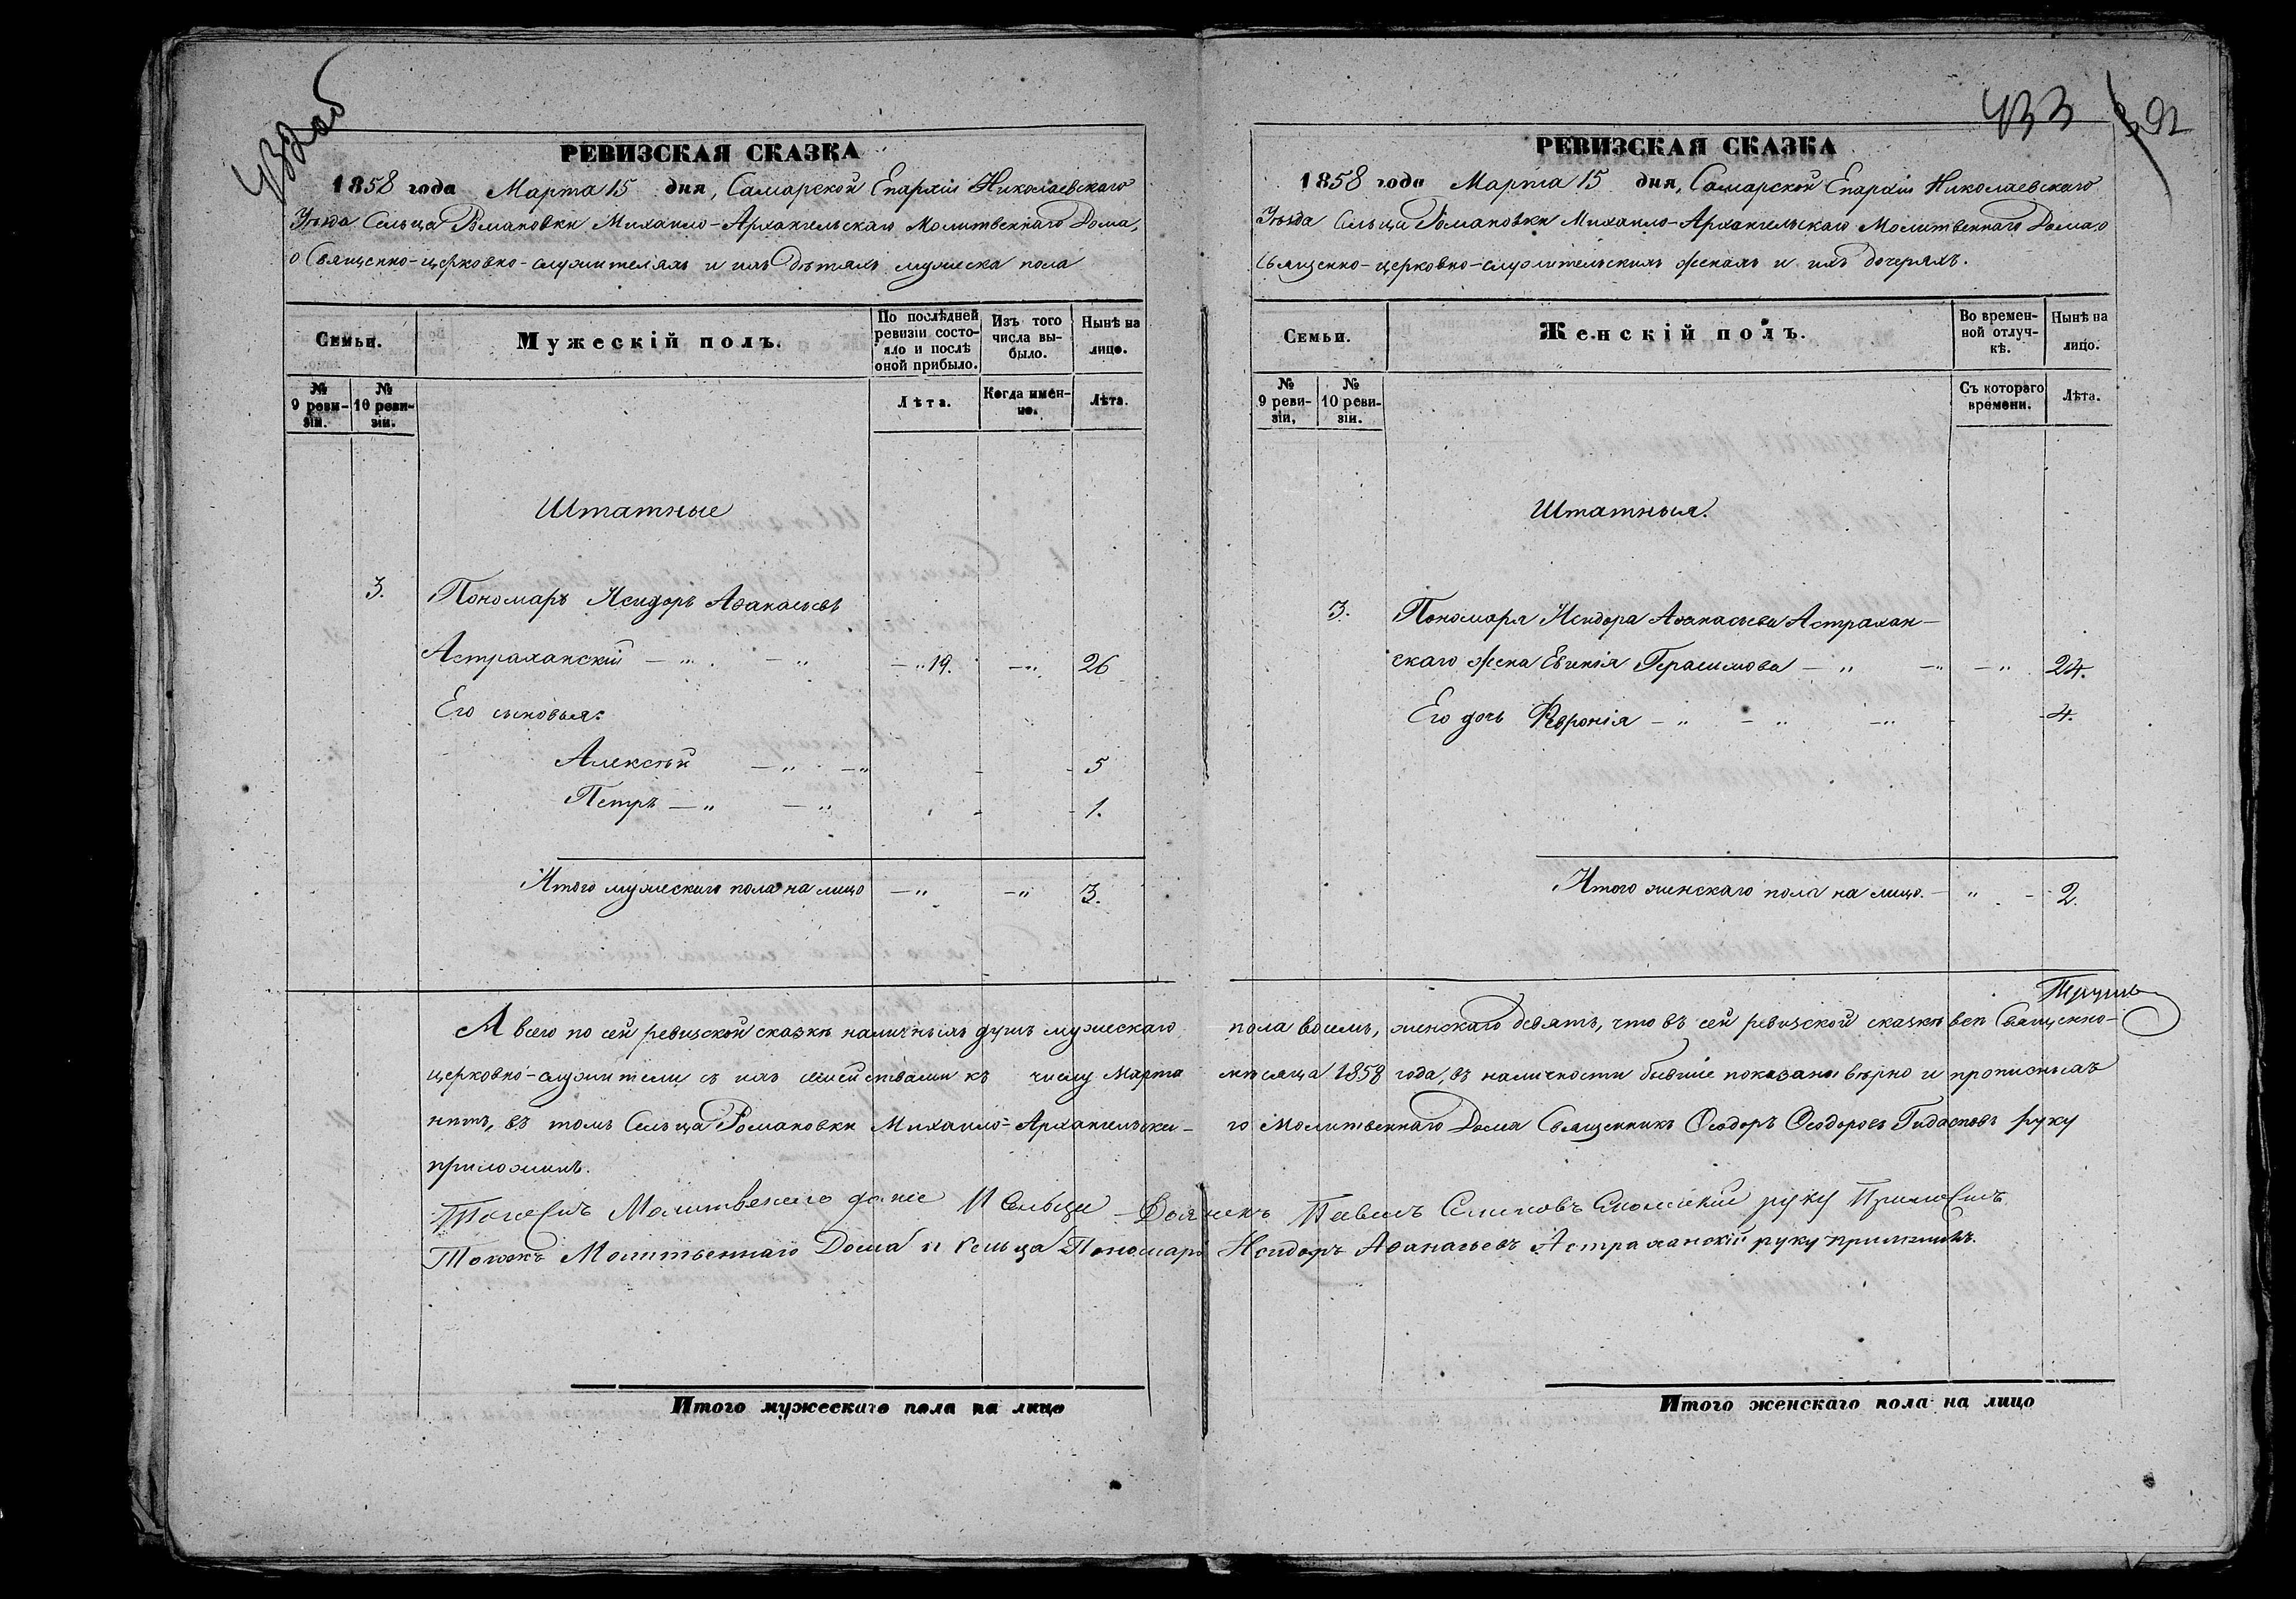 432об
РЕВИЗСКАЯ СКАЗКА
1858 года Марта 15 дня, Самарской Епархіи Николаевскаго
Уѣзда Сельца Романовки Михаило-Архангельскаго Молитвеннаго Дома,
о Священно-церковно-служителяхъ и ихъ дѣтяхъ мужеска пола
Семьи.
Мужескій полъ.
По послѣдней ревизіи состояло и послѣ оной прибыло.
Изъ того числа выбыло.
Нынѣ на лицо.
№ 9 ревизіи.
№ 10 ревизіи.
Лѣта.
Когда именно.
Лѣта.
Штатные
3. Пономарь Исидоръ Аѳанасьевъ
Астраханскій — " — " — " 19. — " 26
Его сыновья:
Алексѣй — " — " - - 5
Петръ — " — " - - 1.
Итого мужескаго пола на лицо — " — " 3.
А всего по сей ревизской сказкѣ наличныхъ душъ мужескаго
церковно-служители съ ихъ семействами къ числу Марта
нѣтъ, въ томъ Сельца Романовки Михаило-Архангельска-
приложилъ.
Молитвенаго Сельца Дьячекъ
Тогожъ Молитвеннаго Дома и Сельца Пономарь
Итого мужескаго пола на лицо
433
РЕВИЗСКАЯ СКАЗКА
1858 года Марта 15 дня, Самарской Епархіи Николаевскаго
Уѣзда Сельца Романовки Михаило-Архангельскаго Молитвеннаго Дома, о
Священно-церковно-служительскихъ женахъ и ихъ дочеряхъ.
Семьи.
Женскій полъ.
Во временной отлучкѣ.
Нынѣ на лицо.
№ 9 ревизіи,
№ 10 ревизіи.
Съ котораго времени.
Лѣта.
Штатныя.
3. Пономаря Исидора Аѳанасьева Астрахан-
скаго жена Евгенія Герасимова — " — " — " 24.
Его дочь Февронія — " — " — " - 4.
Итого женскаго пола на лицо. — " - 2.
пола восемь, женскаго девять, что въ сей ревизской сказкѣ всѣ Священно-
мѣсяца 1858 года, въ наличности бывшіе показаны вѣрно и прописныхъ
го Молитвеннаго Дома Священникъ Ѳеодоръ Ѳеодоровъ Гидасповъ руку
Павелъ руку Приложилъ
Исидоръ Аѳанасьевъ Астраханскій руку приложилъ.
Итого женскаго пола на лицо